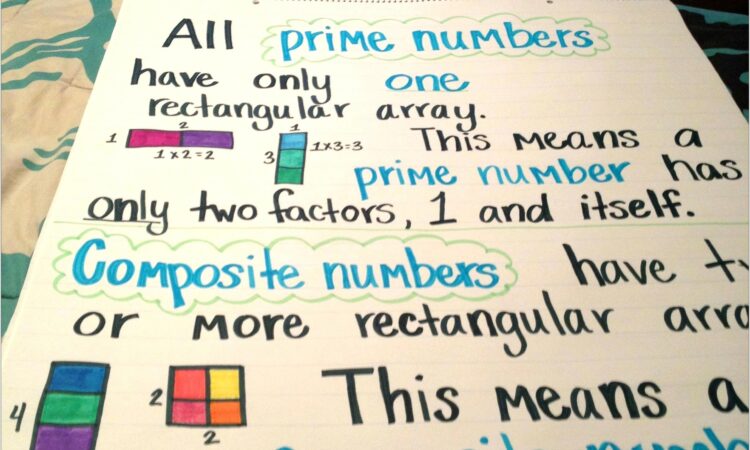 All prime numbers
have only one
rectangular array.
1 2 1
1x2=2 3 1x3=3 This means a
prime number has
only two factors, 1 and itself.
Composite numbers have
or more rectangular
4 2 This means a
2